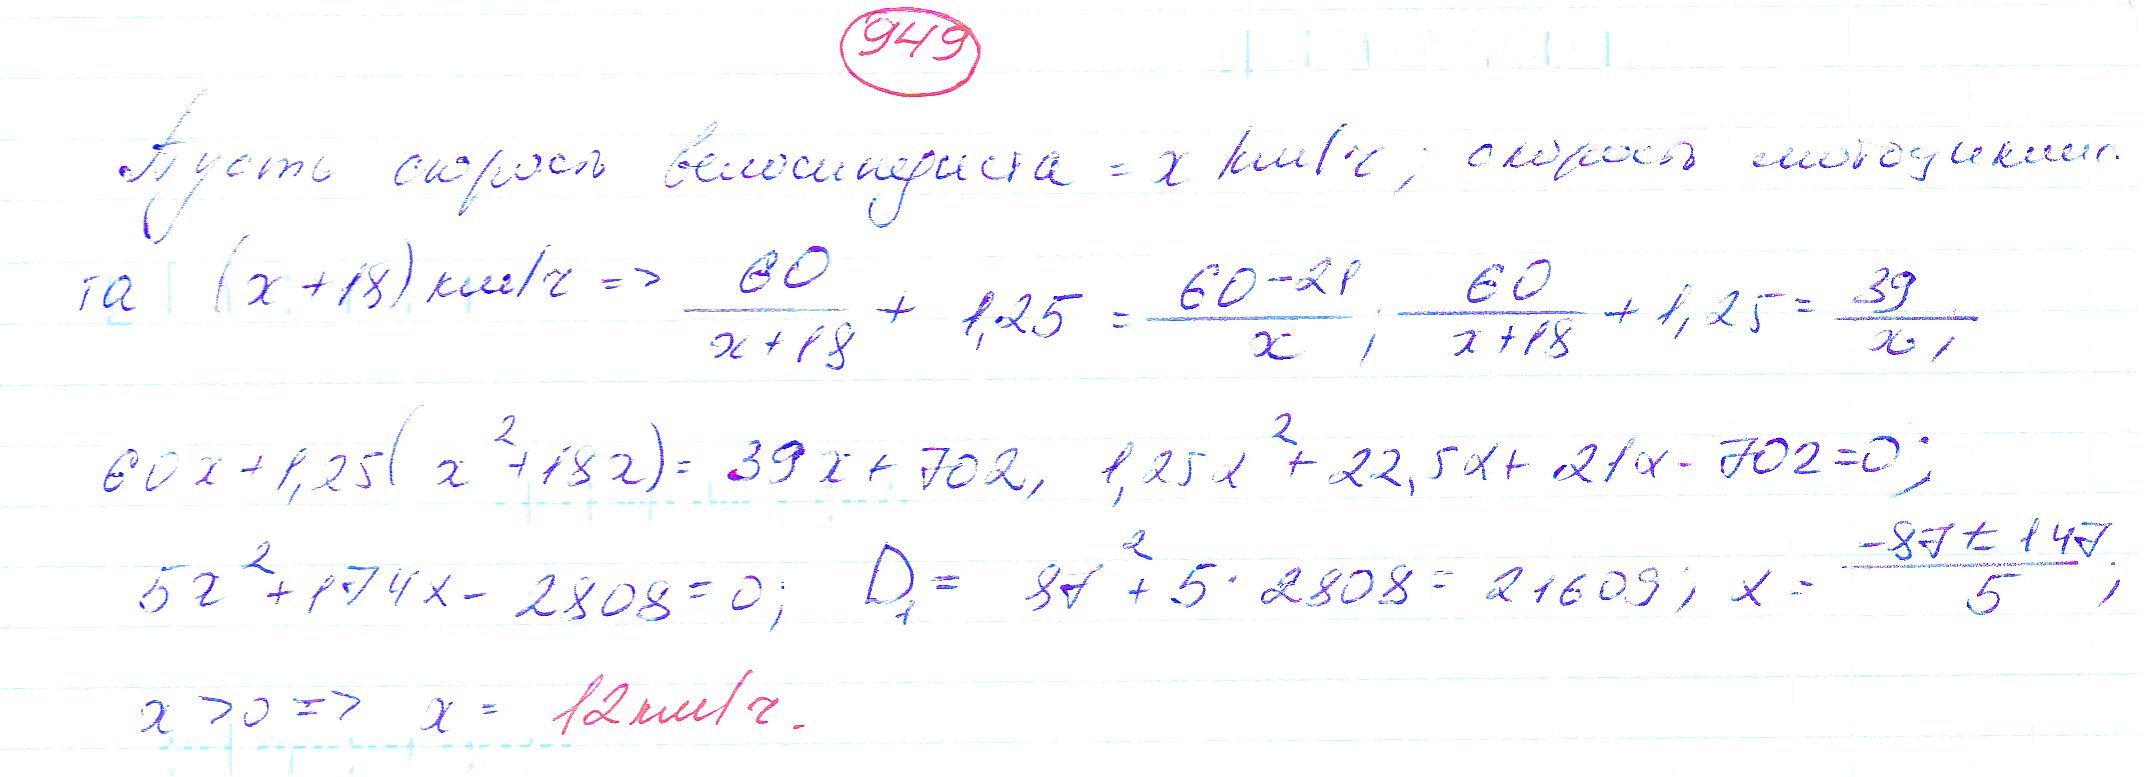 949
Пусть скорость велосипедиста = x км/ч; скорость мотоциклис-
та (x+18) км/ч => 60/(x+18) + 1,25 = (60-21)/x; 60/(x+18) + 1,25 = 39/x;
60x+1,25(x²+18x)= 39x+702, 1,25x²+22,5x+21x-702=0;
5x²+174x-2808=0; D₁= 87²+5·2808=21609; x= (-87±147)/5;
x>0=> x= 12км/ч.